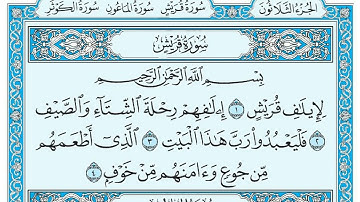 الجزء الثلاثون سورة قريش سورة الماعون سورة الكوثر
سورة قريش
بِسْمِ اللَّهِ الرَّحْمَٰنِ الرَّحِيمِ
لِإِيلَٰفِ قُرَيْشٍ ١ إِۦلَٰفِهِمْ رِحْلَةَ الشِّتَآءِ وَالصَّيْفِ
٢ فَلْيَعْبُدُوا۟ رَبَّ هَٰذَا الْبَيْتِ ٣ الَّذِىٓ أَطْعَمَهُم
مِّن جُوعٍ وَءَامَنَهُم مِّنْ خَوْفٍۭ ٤